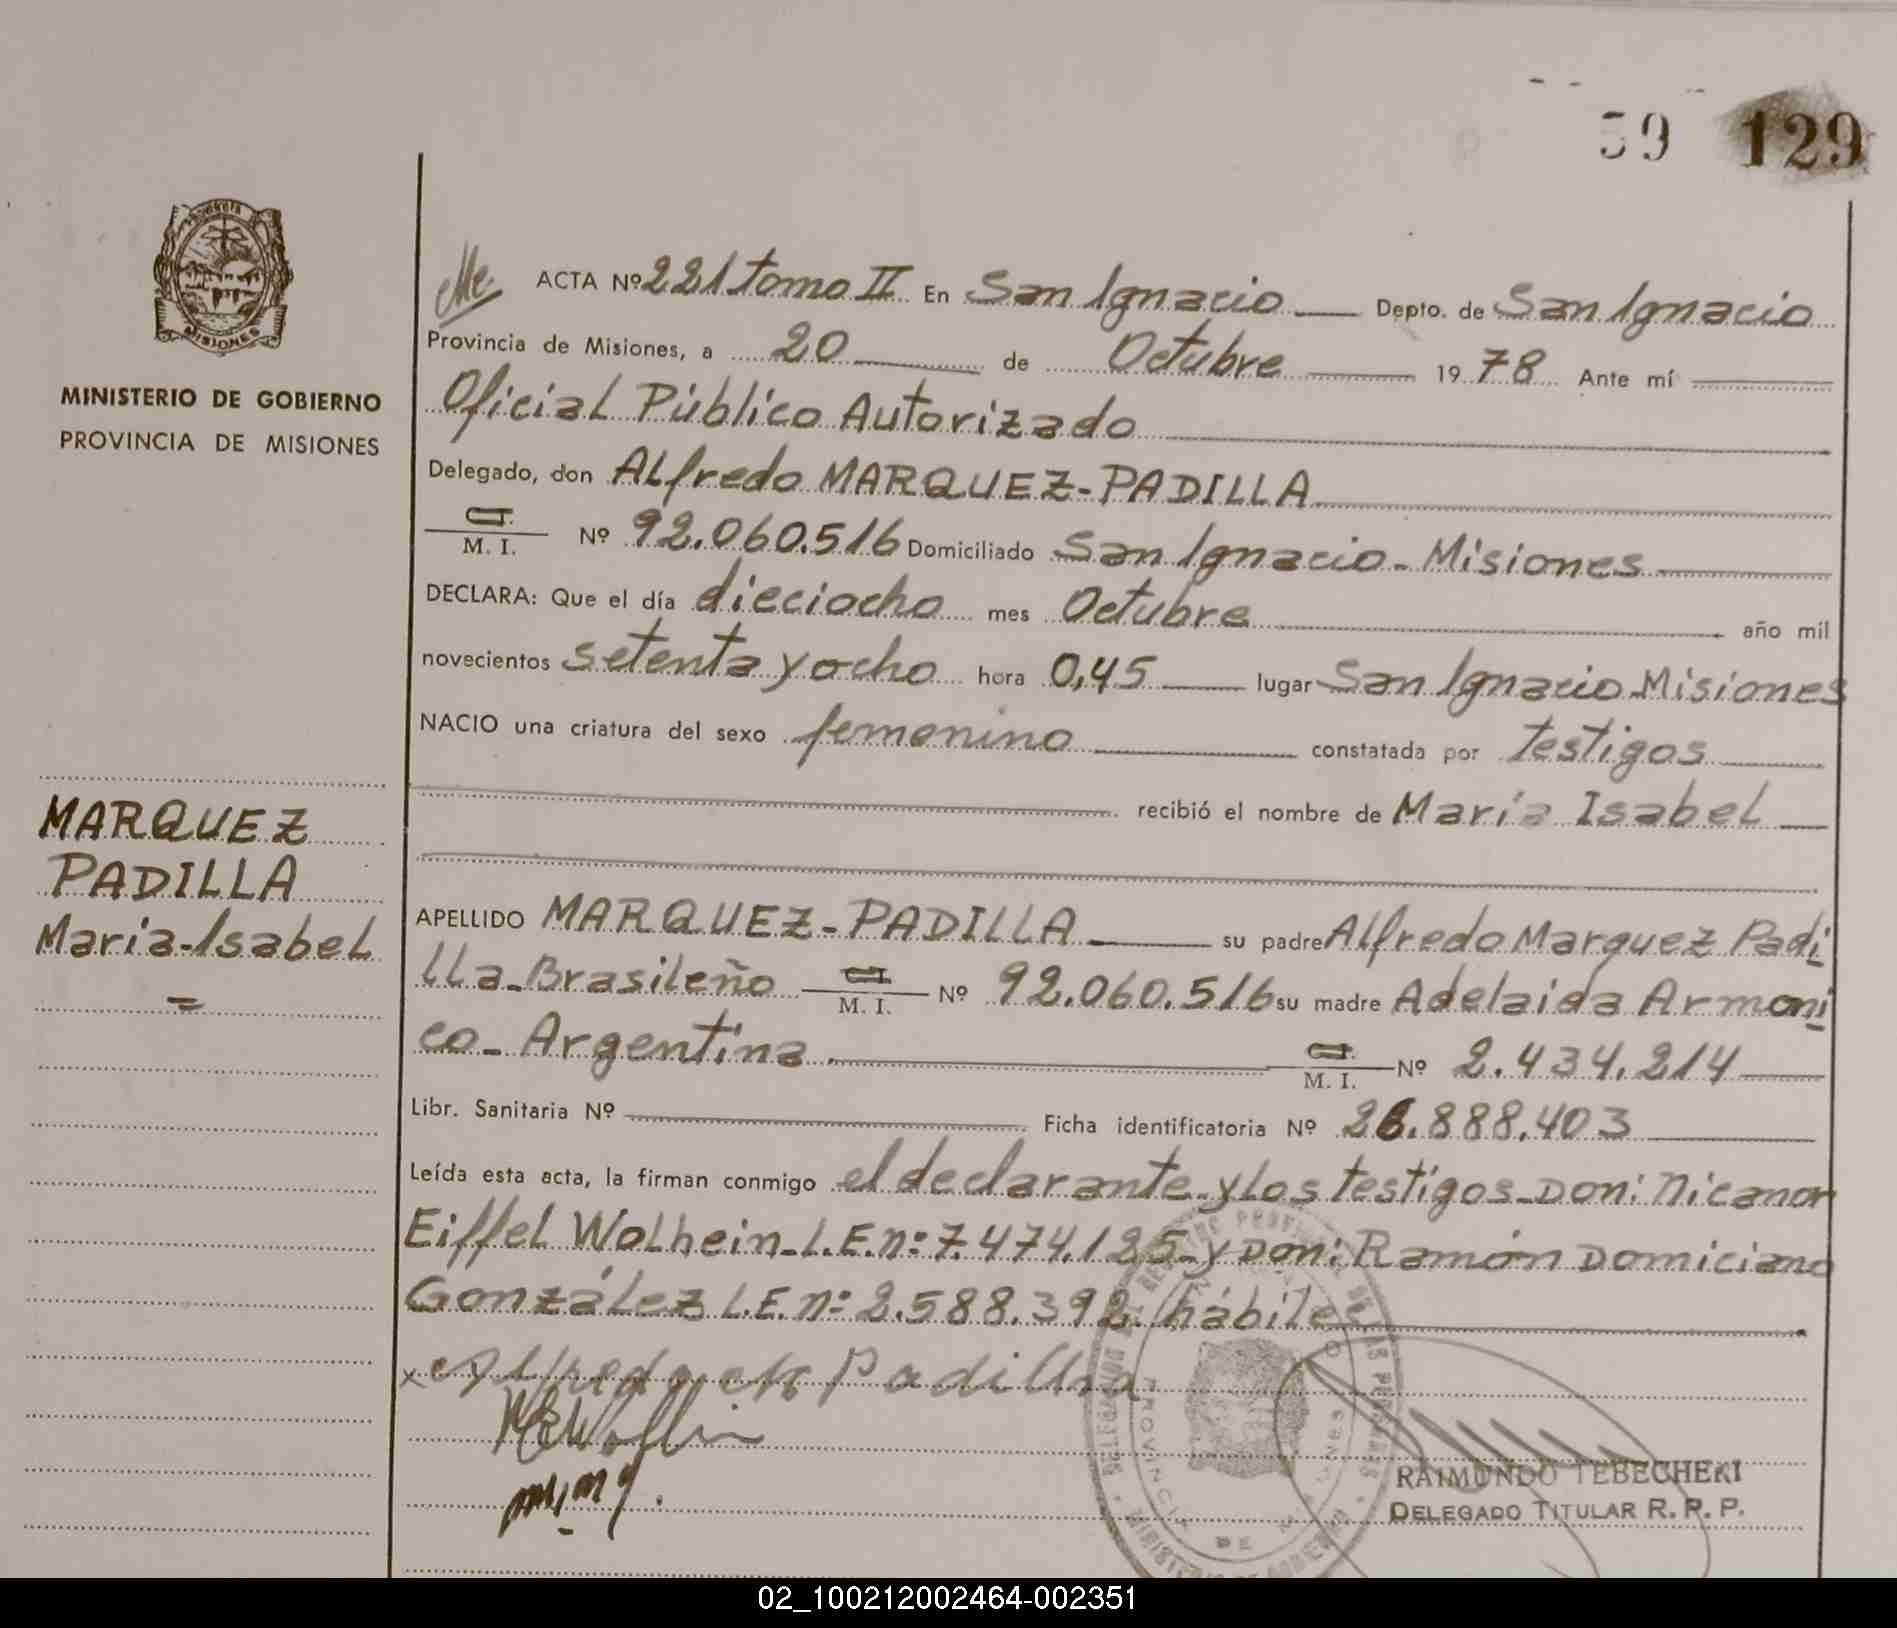 59 129
ACTA Nº 221 tomo II En San Ignacio Depto. de San Ignacio
Provincia de Misiones, a 20 de Octubre 1978 Ante mí
Oficial Público Autorizado
Delegado, don ALfredo MARQUEZ-PADILLA
C.I.
M. I. Nº 92.060.516 Domiciliado San Ignacio - Misiones
DECLARA: Que el día dieciocho mes Octubre año mil
novecientos setenta y ocho hora 0,45 lugar San Ignacio Misiones
NACIO una criatura del sexo femenino constatada por testigos
recibió el nombre de María Isabel
APELLIDO MARQUEZ-PADILLA su padre Alfredo Marquez Padi
lla - Brasileño C.I. M. I. Nº 92.060.516 su madre Adelaida Armoni
co - Argentina. C.I. M. I. Nº 2.434.214
Libr. Sanitaria Nº Ficha identificatoria Nº 26.888.403
Leída esta acta, la firman conmigo el declarante y los testigos - Don: Nicanor
Eiffel Wolhein - L.E. nº: 7.474.125 - y Don: Ramón Domiciano
González L.E. nº: 2.588.392. hábiles
x Alfredo M Padilla
RAIMUNDO TEBECHERI
DELEGADO TITULAR R. P. P.
PROVINCIA DE MISIONES
MISIONES
MINISTERIO DE GOBIERNO
PROVINCIA DE MISIONES
MARQUEZ
PADILLA
Maria-Isabel
=
02_100212002464-002351